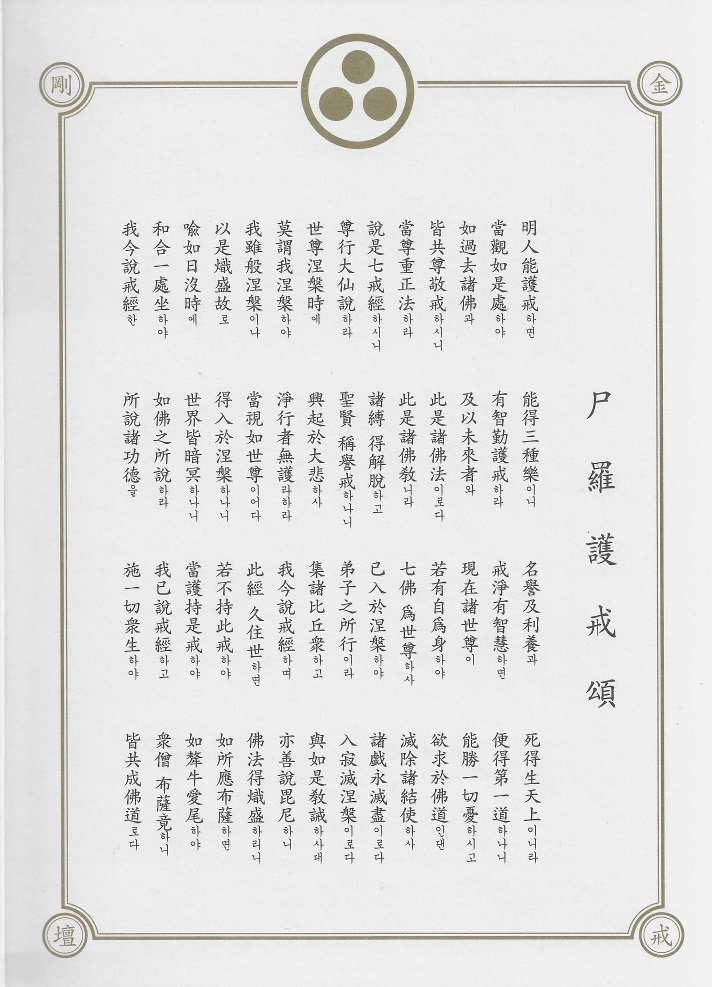 金
剛
尸羅護戒頌
明人能護戒하면 能得三種樂이니 名譽及利養과 死得生天上이니라
當觀如是處하야 有智勤護戒하라 戒淨有智慧하면 便得第一道하나니
如過去諸佛과 及以未來者와 現在諸世尊이 能勝一切憂하시고
皆共尊敬戒하시니 此是諸佛法이로다 若有自爲身하야 欲求於佛道인댄
當尊重正法하라 此是諸佛敎니라 七佛 爲世尊하사 滅除諸結使하사
說是七戒經하시니 諸縛 得解脫하고 已入於涅槃하야 諸戲永滅盡이로다
尊行大仙說하라 聖賢 稱譽戒하나니 弟子之所行이라 入寂滅涅槃이로다
世尊涅槃時에 興起於大悲하사 集諸比丘衆하고 與如是敎誡하사대
莫謂我涅槃하야 淨行者無護라하라 我今說戒經하며 亦善說毘尼하니
我雖般涅槃이나 當視如世尊이어다 此經 久住世하면 佛法得熾盛하리니
以是熾盛故로 得入於涅槃하나니 若不持此戒하야 如所應布薩하면
喩如日沒時에 世界皆暗冥하나니 當護持是戒하야 如犛牛愛尾하야
和合一處坐하야 如佛之所說하라 我已說戒經하고 衆僧 布薩竟하니
我今說戒經한 所說諸功德을 施一切衆生하야 皆共成佛道로다
戒
壇